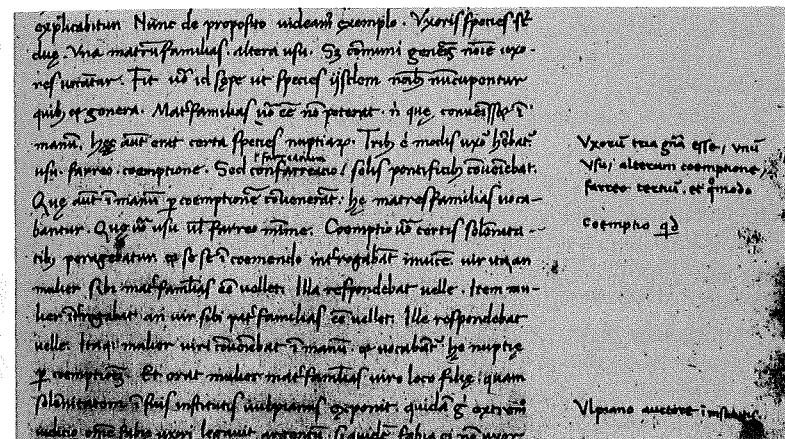 explicabitur. Nunc de proposito uideam̄ exemplo. Vxoris species st̄
duę. Vna matrūfamilias. altera usu. Sꝫ cōmuni genęis noīe uxo-
res uocātar. Fit uō id sępe ut species ijsdem noībꝫ nūcupentur
quibꝫ et genera. Mat̄familias uō eē nō poterat. n̄ que conuēisset ī
manū. hęc aūt erat certa species nuptiaꝝ. Tribꝫ ē modis uxō hēbat᷑
usu. farreo. coemptione. Sed confarreatio / solis pontificibꝫ cōuēiebat.
farracanum
Quę aūt ī manū ꝑ coemptionē cōuenerāt. hę matresfamilias uoca-
bantur. Que uō usu ul̄ farreo mīme. Coemptio uō certis solēnita-
tibꝫ peragebatur. et se se ī coemendo int̄rogabāt inuicē. uir ita. an
mulier sibi mat̄familias eē vellet: Illa respondebat uelle. Item mu-
lier īt̄rogabat an vir sibi pat̄familias eē vellet: Ille respondebat
uelle. Itaqꝫ mulier viri cōuēiebat ī manū. et vocabāt᷑ hę nuptię
ꝑ coemptionē. Et erat mulier mat̄familias uiro loco filię. quam
solēnitatem ī suis institutis uulpianus exponit. quidā g̊ extremō
iudicio omē fabię uxori legauit argentū. si quidē fabia ei nō uxor
Vxorū tria gn̄a esse / vnū
Vsu, alterum coemptione,
farreo tertiū. et qͦmodo
Coemptio qd̄
Vlpiano auctore ī institutis